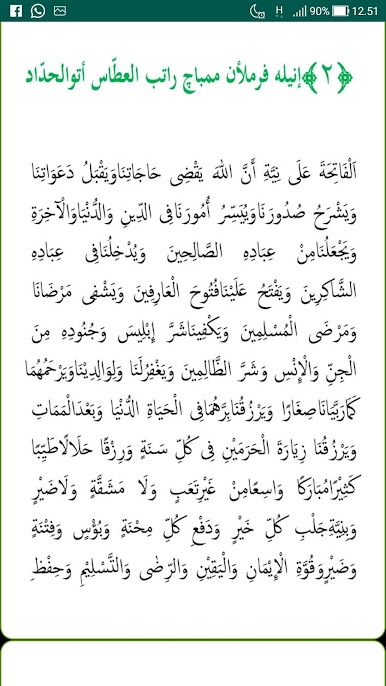 H 4G 90% 12.51
﴿٢﴾إنيله فرملأن ممباچ راتب العطّاس أتوالحدّاد
اَلْفَاتِحَةَ عَلَى نِيَّةِ أَنَّ اللهَ يَقْضِى حَاجَاتِنَاوَيَقْبَلُ دَعَوَاتِنَا
وَيَشْرَحُ صُدُورَنَاوَيُيَسِّرُ أُمُورَنَافِى الدِّينِ وَالدُّنْيَاوَالْآخِرَةِ
وَيَجْعَلُنَامِنْ عِبَادِهِ الصَّالِحِينَ وَيُدْخِلُنَافِى عِبَادِهِ
الشَّاكِرِينَ وَيَفْتَحُ عَلَيْنَافُتُوحَ الْعَارِفِينَ وَيَشْفِى مَرْضَانَا
وَمَرْضَى الْمُسْلِمِينَ وَيَكْفِينَاشَرَّ إِبْلِيسَ وَجُنُودِهِ مِنَ
الْجِنِّ وَالْإِنْسِ وَشَرَّ الظَّالِمِينَ وَيَغْفِرُلَنَا وَلِوَالِدِيْنَاوَيَرْحَمُهُمَا
كَمَارَبَّيَانَاصِغَارًا وَيَرْزُقُنَابِرَّهُمَافِى الْحَيَاةِ الدُّنْيَا وَبَعْدَالْمَمَاتِ
وَيَرْزُقُنَا زِيَارَةَ الْحَرَمَيْنِ فِى كُلِّ سَنَةٍ وَرِزْقًا حَلَالًاطَيِّبًا
كَثِيْرًامُبَارَكًا وَاسِعًامِنْ غَيْرِتَعَبٍ وَلَا مَشَقَّةٍ وَلَاضَيْرٍ
وَبِنِيَّةِجَلْبِ كُلِّ خَيْرٍ وَدَفْعِ كُلِّ مِحْنَةٍ وَبُؤْسٍ وَفِتْنَةٍ
وَضَيْرٍوَقُوَّةِ الْإِيْمَانِ وَالْيَقِيْنِ وَالرِّضٰى وَالتَّسْلِيْمِ وَحِفْظِ